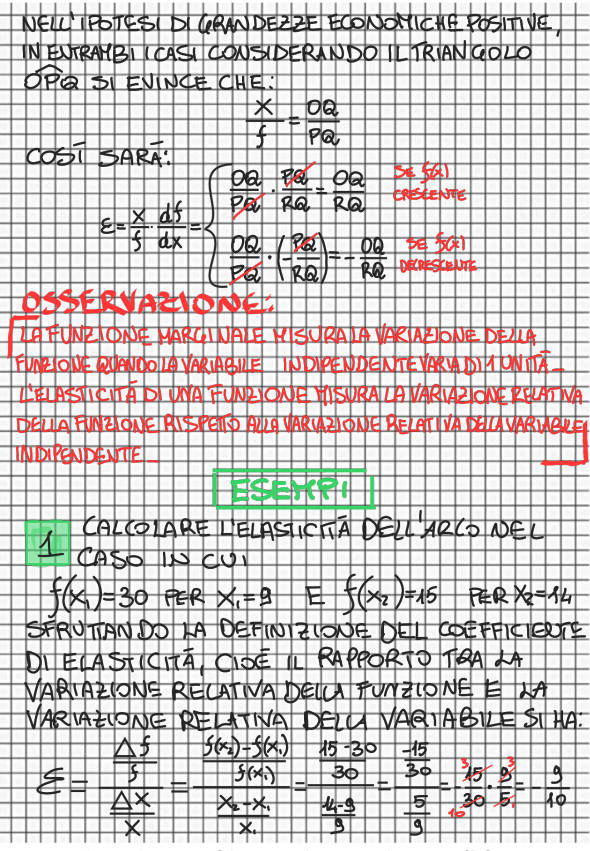 NELL'IPOTESI DI GRANDEZZE ECONOMICHE POSITIVE,
IN ENTRAMBI I CASI CONSIDERANDO IL TRIANGOLO
OP̂Q SI EVINCE CHE:
X/f = OQ/PQ
COSÌ SARÀ:
ε = x/f · df/dx = { OQ/PQ · PQ/RQ = OQ/RQ SE f(x) CRESCENTE
OQ/PQ · (-PQ/RQ) = - OQ/RQ SE f(x) DECRESCENTE
OSSERVAZIONE:
LA FUNZIONE MARGINALE MISURA LA VARIAZIONE DELLA
FUNZIONE QUANDO LA VARIABILE INDIPENDENTE VARIA DI 1 UNITÀ_
L'ELASTICITÀ DI UNA FUNZIONE MISURA LA VARIAZIONE RELATIVA
DELLA FUNZIONE RISPETO ALLA VARIAZIONE RELATIVA DELLA VARIABILE
INDIPENDENTE_
ESEMPI
1 CALCOLARE L'ELASTICITÀ DELL'ARCO NEL
CASO IN CUI
f(x₁)=30 PER X₁=9 E f(x₂)=15 PER X₂=14
SFRUTTANDO LA DEFINIZIONE DEL COEFFICIENTE
DI ELASTICITÀ, CIOÈ IL RAPPORTO TRA LA
VARIAZIONE RELATIVA DELLA FUNZIONE E LA
VARIAZIONE RELATIVA DELLA VARIABILE SI HA:
ε = (Δf/f)/(ΔX/X) = ((f(x₂)-f(x₁))/f(x₁))/((X₂-X₁)/X₁) = ((15-30)/30)/((14-9)/9) = (-15/30)/(5/9) = -3 15/30 10 · 9/5 3 1 = - 9/10